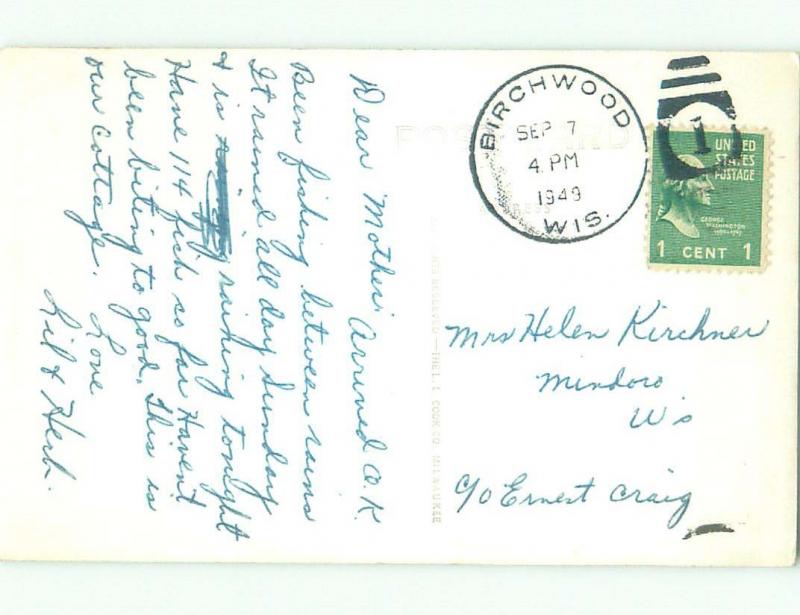 Dear Mother: Arrived O.K.
Been fishing between rains
It rained all day Sunday
& is raining tonight
Have 114 fish so far Haven't
been biting to good. This is
our cottage. Love
Lil & Herb.
BIRCHWOOD
SEP 7
4 PM
1949
WIS.
1
UNITED
STATES
POSTAGE
GEORGE
WASHINGTON
1789-1797
1 CENT 1
POST CARD
ADDRESS
Mrs Helen Kirchner
Mindoro
Wis
c/o Ernest Craig
THE L. L. COOK CO. MILWAUKEE